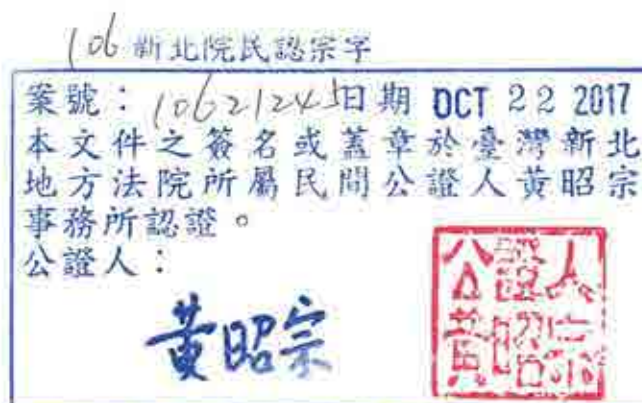 106 新北院民認宗字
案號：10621245日期 OCT 22 2017
本文件之簽名或蓋章於臺灣新北
地方法院所屬民間公證人黃昭宗
事務所認證。
公證人：
黃昭宗
公證人
黃昭宗